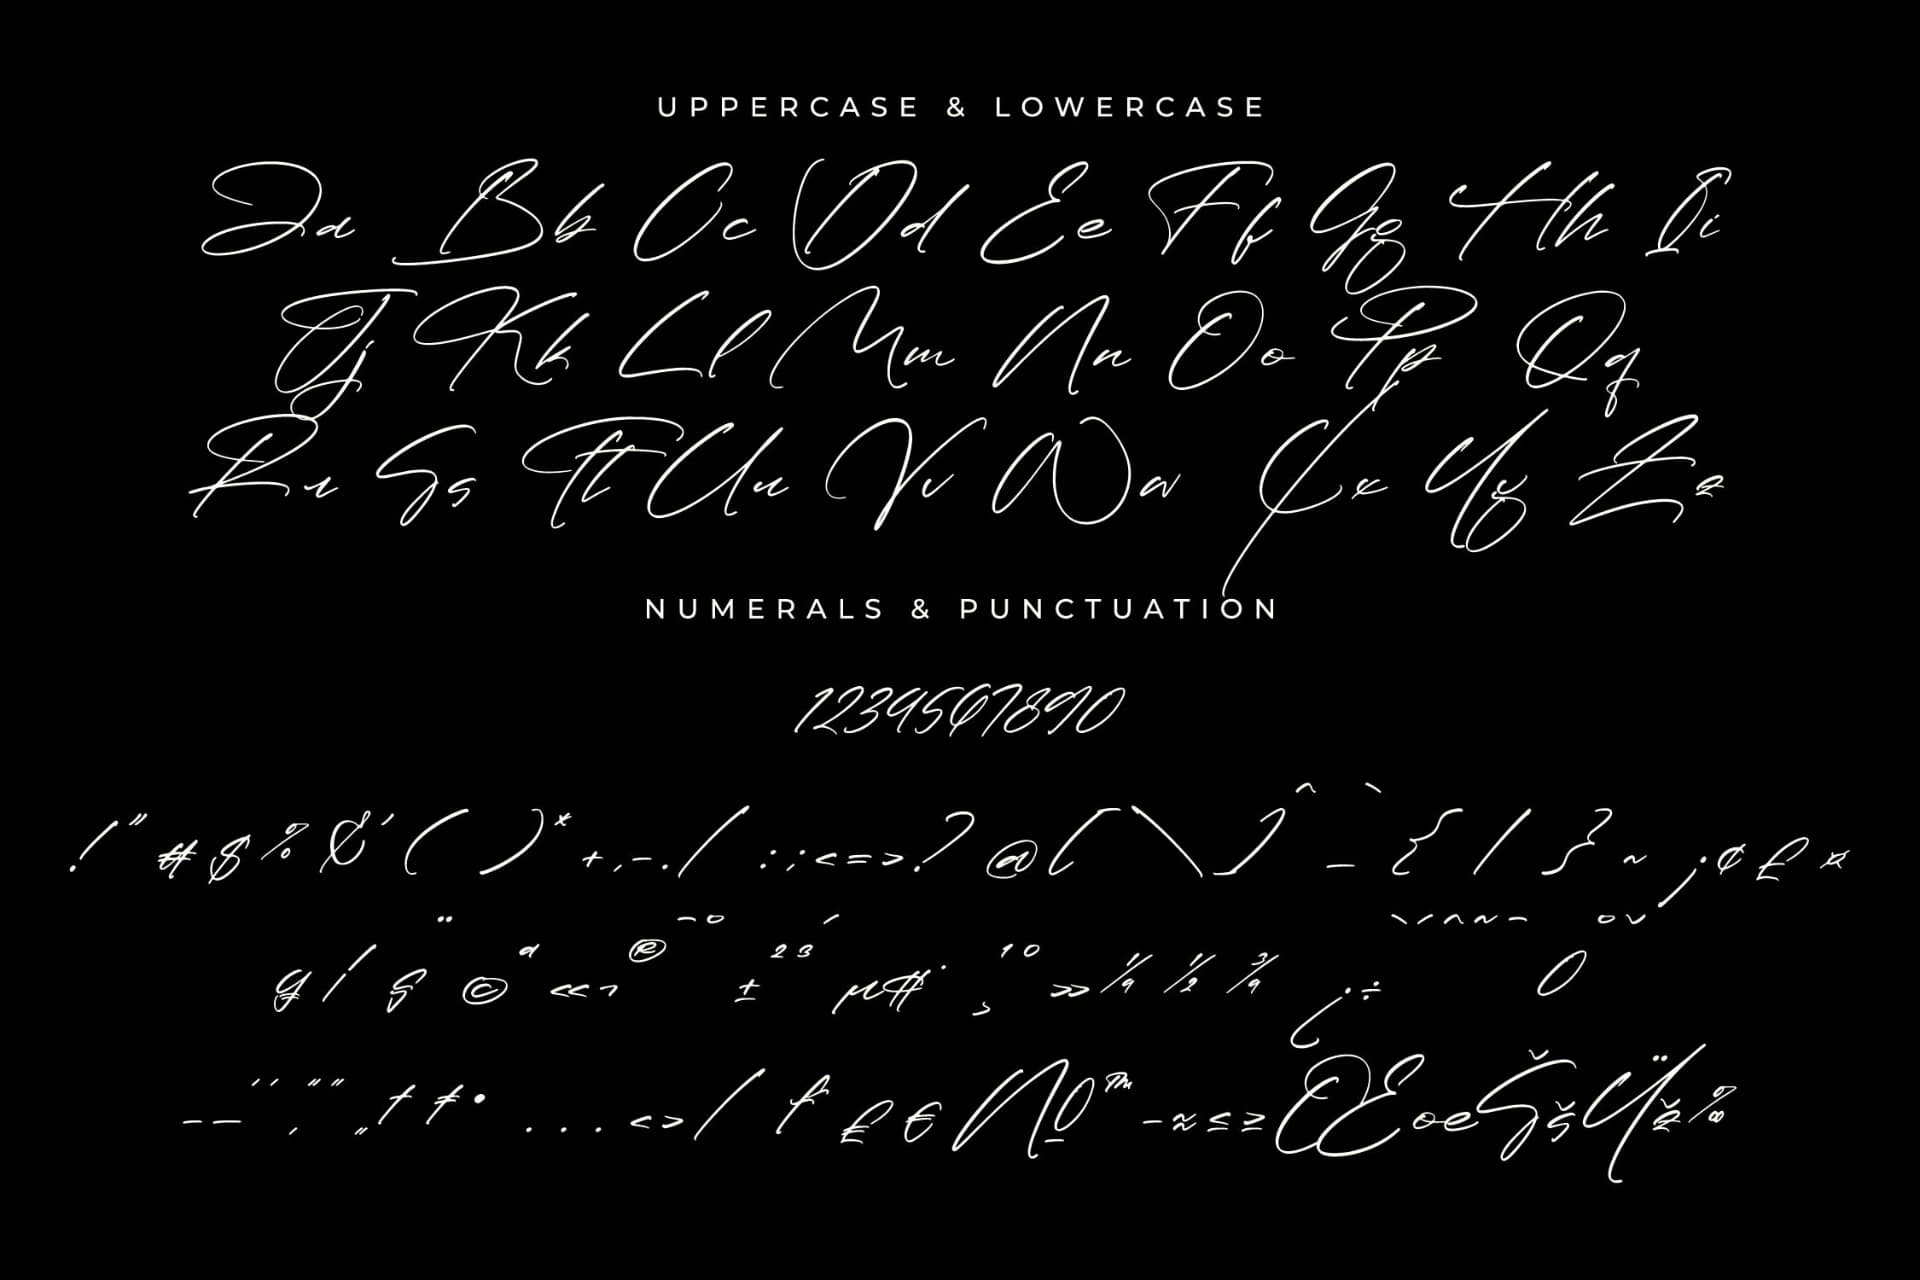 UPPERCASE & LOWERCASE
Aa Bb Cc Dd Ee Ff Gg Hh Ii
Jj Kk Ll Mm Nn Oo Pp Qq
Rr Ss Tt Uu Vv Ww Xx Yy Zz
NUMERALS & PUNCTUATION
1234567890
!"#$%&'()*+,-./:;<=>?@[\]^_`{|}~¡¢£¤
¥¦§¨©ª«¬®¯°±²³´µ¶·¸¹º»¼½¾¿÷
–—‘’‚“”„†‡•...‹›⁄ƒ₤€№™−≈≤≥ŒœŠšŸž‰